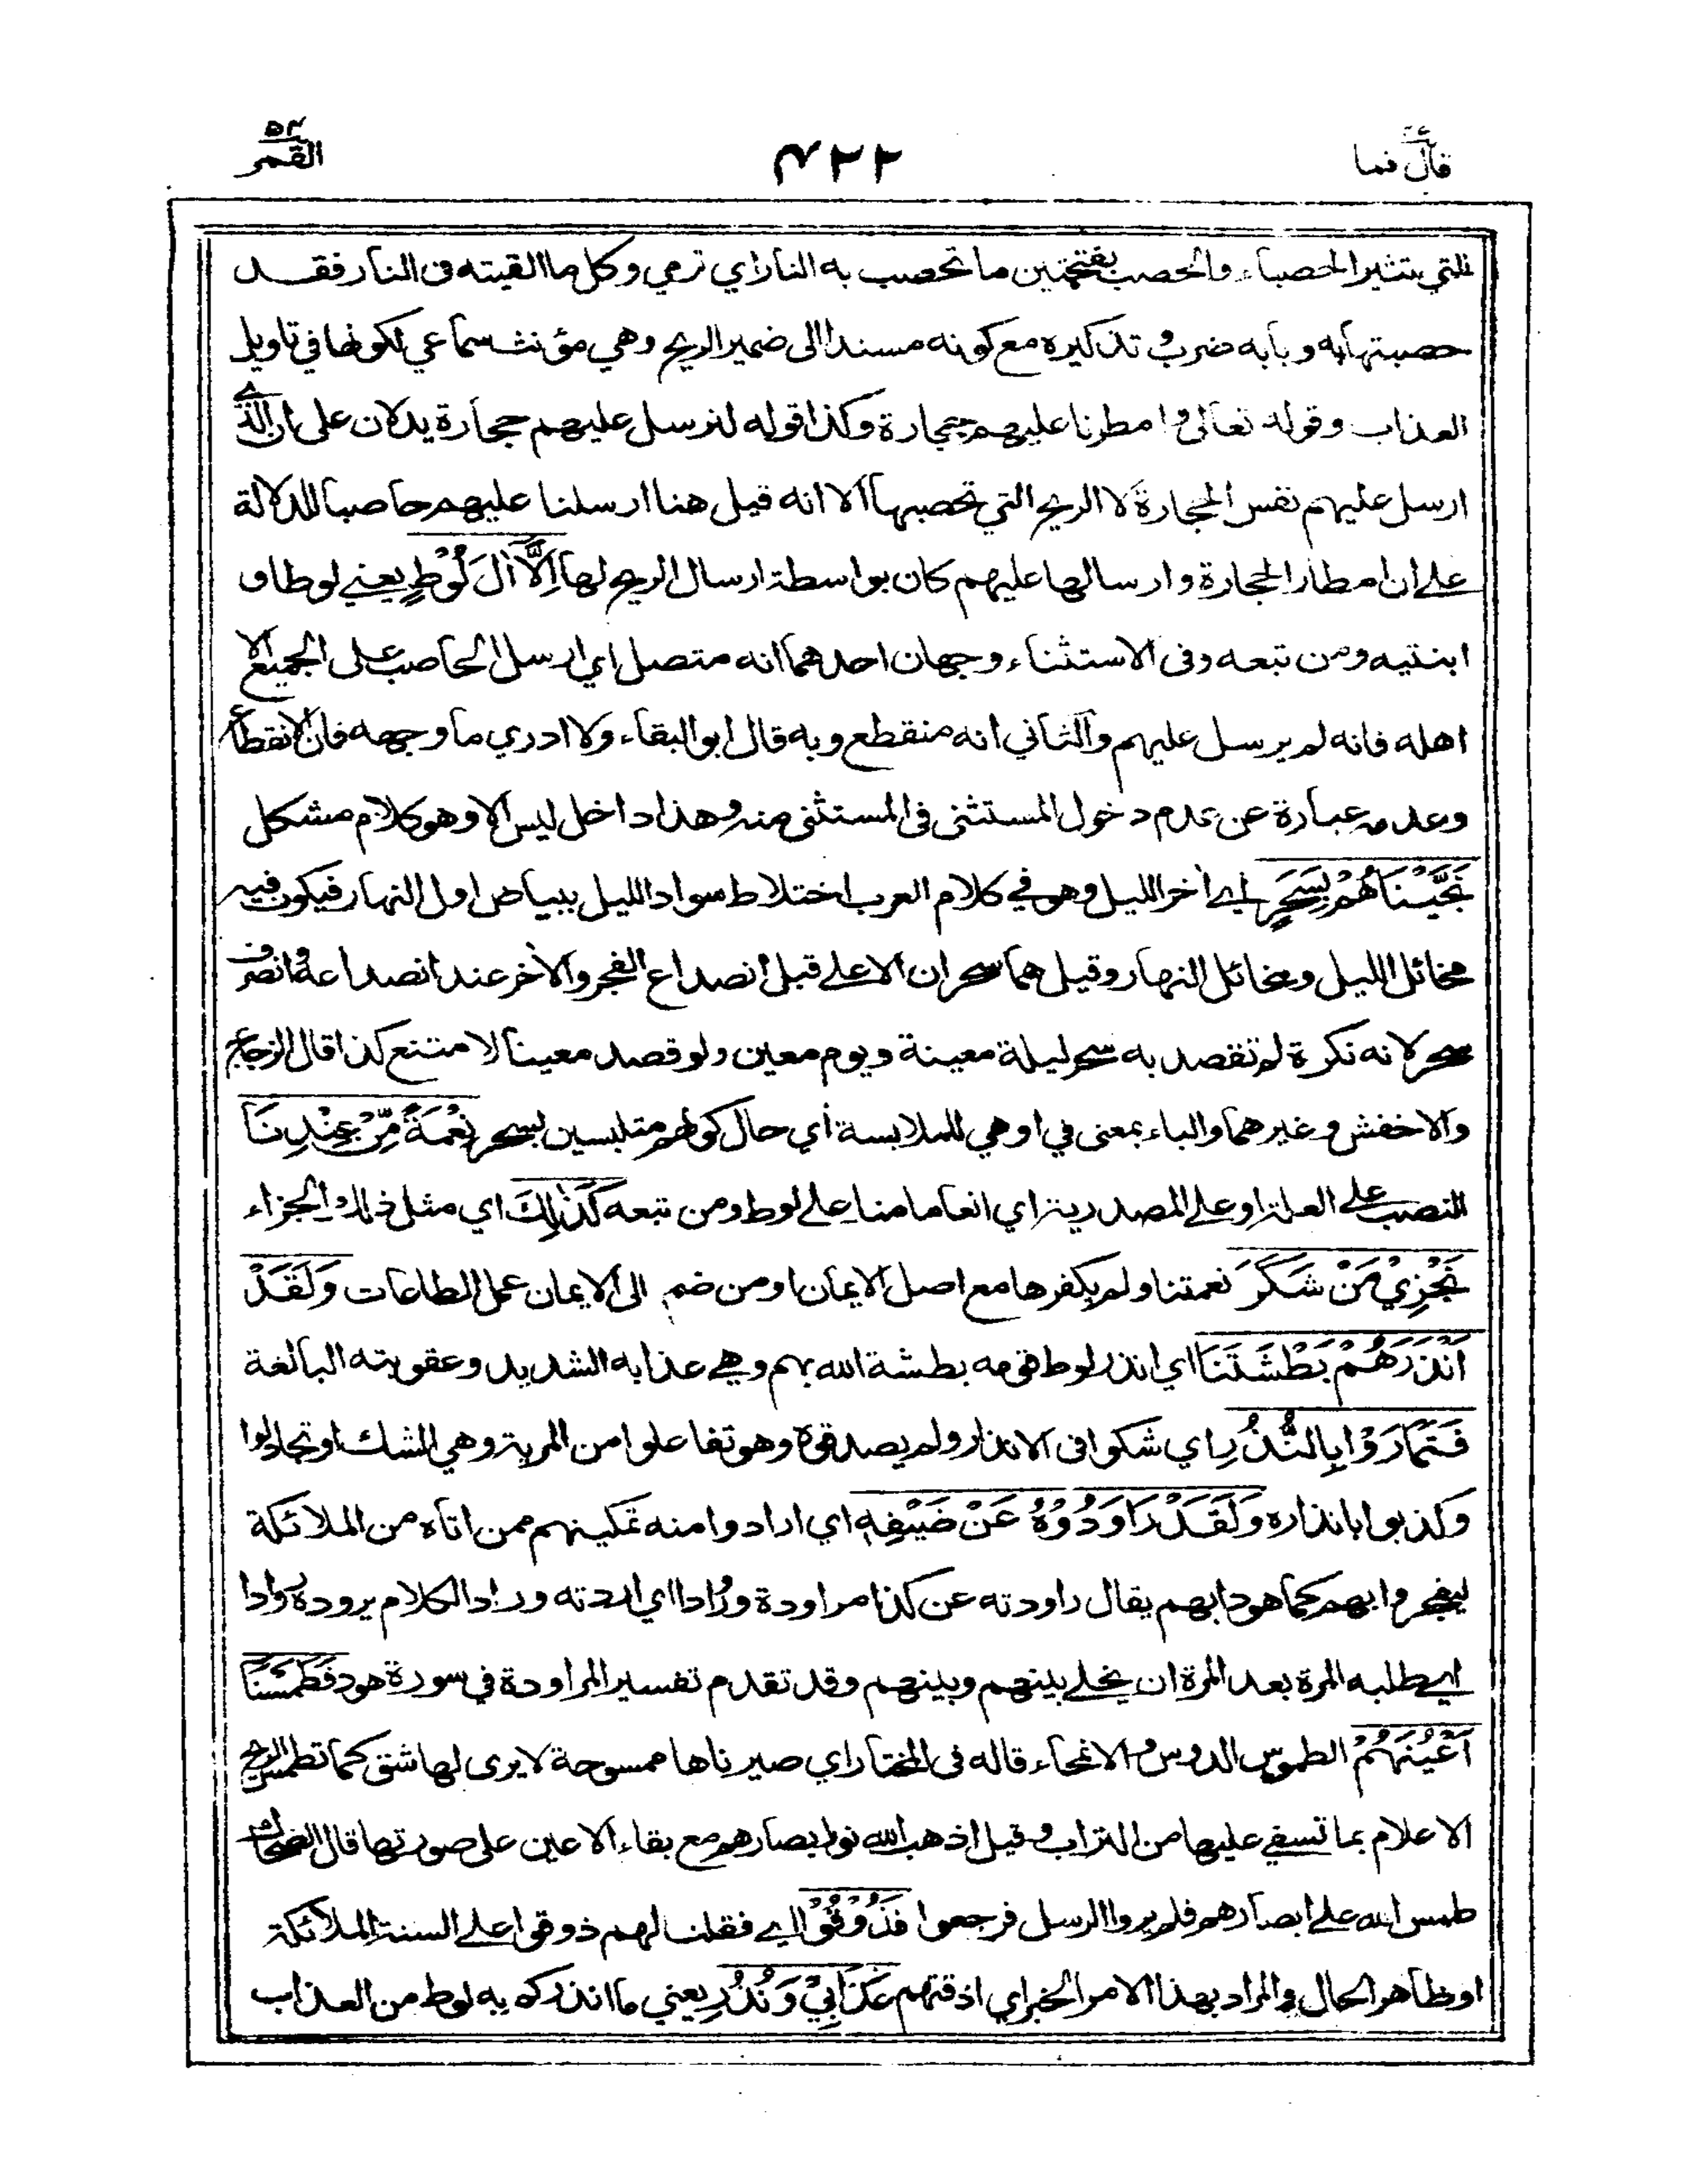 قال فما
٤٢٢
القمر ٥٤
التي تثير الحصباء والحصب بفتحتين ما تحصب به النار اي ترمي وكل ما القيته في النار فقد
حصبتها به وبابه ضرب و تذكيره مع كونه مسندا الى ضمير الريح وهي مؤنث سماعي لكونها في تاويل
العذاب وقوله تعالى وامطرنا عليهم حجارة وكذا قوله لنرسل عليهم حجارة يدلان على ان الذي
ارسل عليهم نفس الحجارة لا الريح التي تحصبها الا انه قيل هنا ارسلنا عليهم حاصبا للدلالة
على ان امطار الحجارة وارسالها عليهم كان بواسطة ارسال الريح لها اِلَّا اٰلَ لُوْطٍ يعني لوطا و
ابنتيه ومن تبعه وفى الاستثناء وجهان احدهما انه متصل اي ارسل الحاصب على الجميع الا
اهله فانه لم يرسل عليهم والثاني انه منقطع وبه قال ابو البقاء ولا ادري ما وجهه فان الانقطاع
وعدمه عبارة عن عدم دخول المستثنى فى المستثنى منه وهذا داخل ليس الا وهو كلام مشكل
نَجَّيْنَاهُمْ بِسَحَرٍ اي اٰخر الليل وهو في كلام العرب اختلاط سواد الليل ببياض اول النهار فيكون فيه
مخائل الليل ومخائل النهار وقيل هما سحران الاعلى قبل انصداع الفجر والاٰخر عند انصداعه وانصرف
سحر لانه نكرة لم تقصد به سحر ليلة معينة ويوم معين ولو قصد معينا لامتنع كذا قال الزجاج
والاخفش وغيرهما والباء بمعنى في او هي للملابسة أي حال كونهم متلبسين بسحر نِعْمَةً مِّنْ عِنْدِنَا
النصب على العلة او على المصدرية اي انعاما منا على لوط ومن تبعه كَذٰلِكَ اي مثل ذلك الجزاء
نَجْزِيْ مَنْ شَكَرَ نعمتنا ولم يكفرها مع اصل الايمان او من ضم الى الايمان عمل الطاعات وَلَقَدْ
اَنْذَرَهُمْ بَطْشَتَنَا اي انذر لوط قومه بطشة الله بهم وهي عذابه الشديد وعقوبته البالغة
فَتَمَارَوْا بِالنُّذُرِ اي شكوا فى الانذار ولم يصدقوه وهو تفاعلوا من المرية وهي الشك او تجادلوا
وكذبوا بانذاره وَلَقَدْ رَاوَدُوْهُ عَنْ ضَيْفِهٖ اي ارادوا منه تمكينهم ممن اتاه من الملائكة
ليفجروا بهم كما هو دابهم يقال راودته عن كذا مراودة ورُادا اي اردته وراد الكلام يروده روادا
اي طلبه المرة بعد المرة ان يخلي بينهم وبينهم وقد تقدم تفسير المراودة في سورة هود فَطَمَسْنَا
اَعْيُنَهُمْ الطموس الدروس والانمحاء قاله فى المختار اي صيرناها ممسوحة لا يرى لها شق كما تطمس الريح
الاعلام بما تسفي عليها من التراب وقيل اذهب الله نور ابصارهم مع بقاء الاعين على صورتها قال الضحاك
طمس الله على ابصارهم فلم يروا الرسل فرجعوا فَذُوْقُوْا اي فقلنا لهم ذوقوا على السنة الملائكة
او ظاهر الحال والمراد بهذا الامر الخبر اي اذقتهم عَذَابِيْ وَنُذُرِ يعني ما انذركم به لوط من العذاب